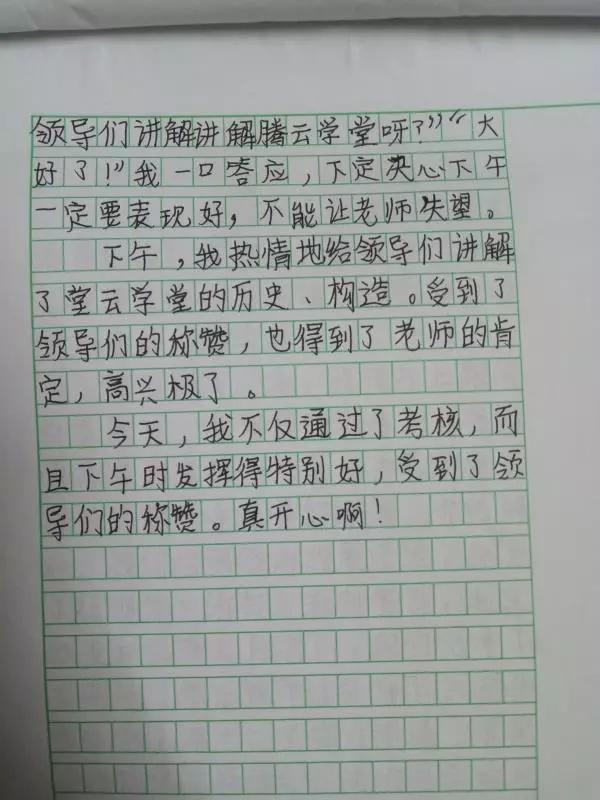 领导们讲解讲解腾云学堂呀?”“大
好了!”我一口答应,下定决心下午
一定要表现好,不能让老师失望。
下午,我热情地给领导们讲解
了堂云学堂的历史、构造。受到了
领导们的称赞,也得到了老师的肯
定,高兴极了。
今天,我不仅通过了考核,而
且下午时发挥得特别好,受到了领
导们的称赞。真开心啊!